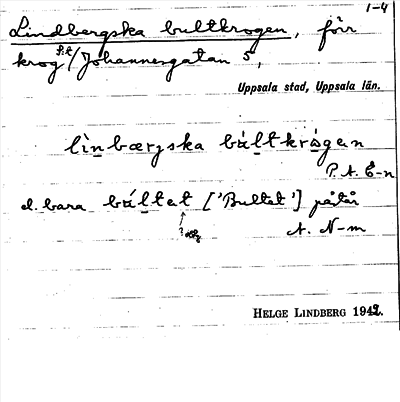 1-4
Lindbergska bultkrogen, förr
krog S:t Johannesgatan 5,
Uppsala stad, Uppsala län.
lìnbærjska bùltkrɷgen
P. A. E-n
el. bara bɷ́ltet ['Bultet'] påstår
A. N-m
HELGE LINDBERG 1942.